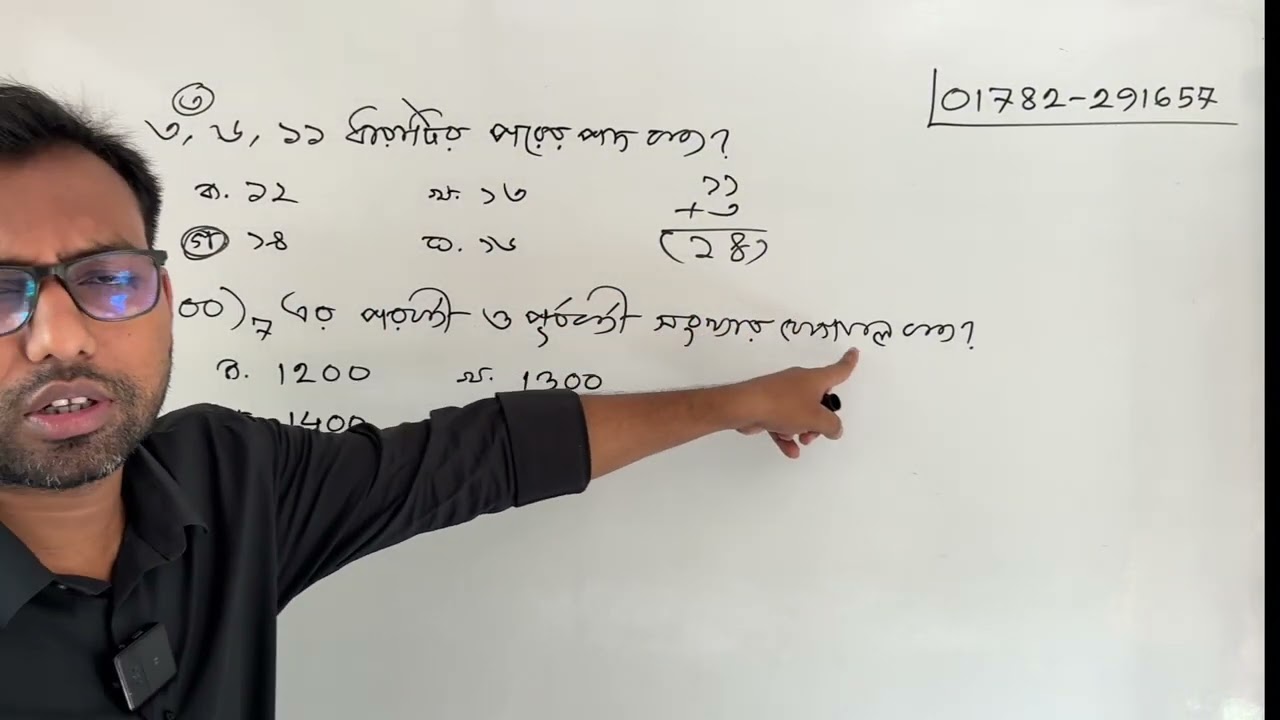 ৩
01782-291657
৩, ৬, ১১ ধারাটির পরের পদ কত?
ক. ১২ খ. ১৩
গ ১৪ ঘ. ১৬
১১
+৩
(১৪)
00)₇ এর পরবর্তী ও পূর্ববর্তী সংখ্যার যোগফল কত?
ক. 1200 খ. 1300
1400